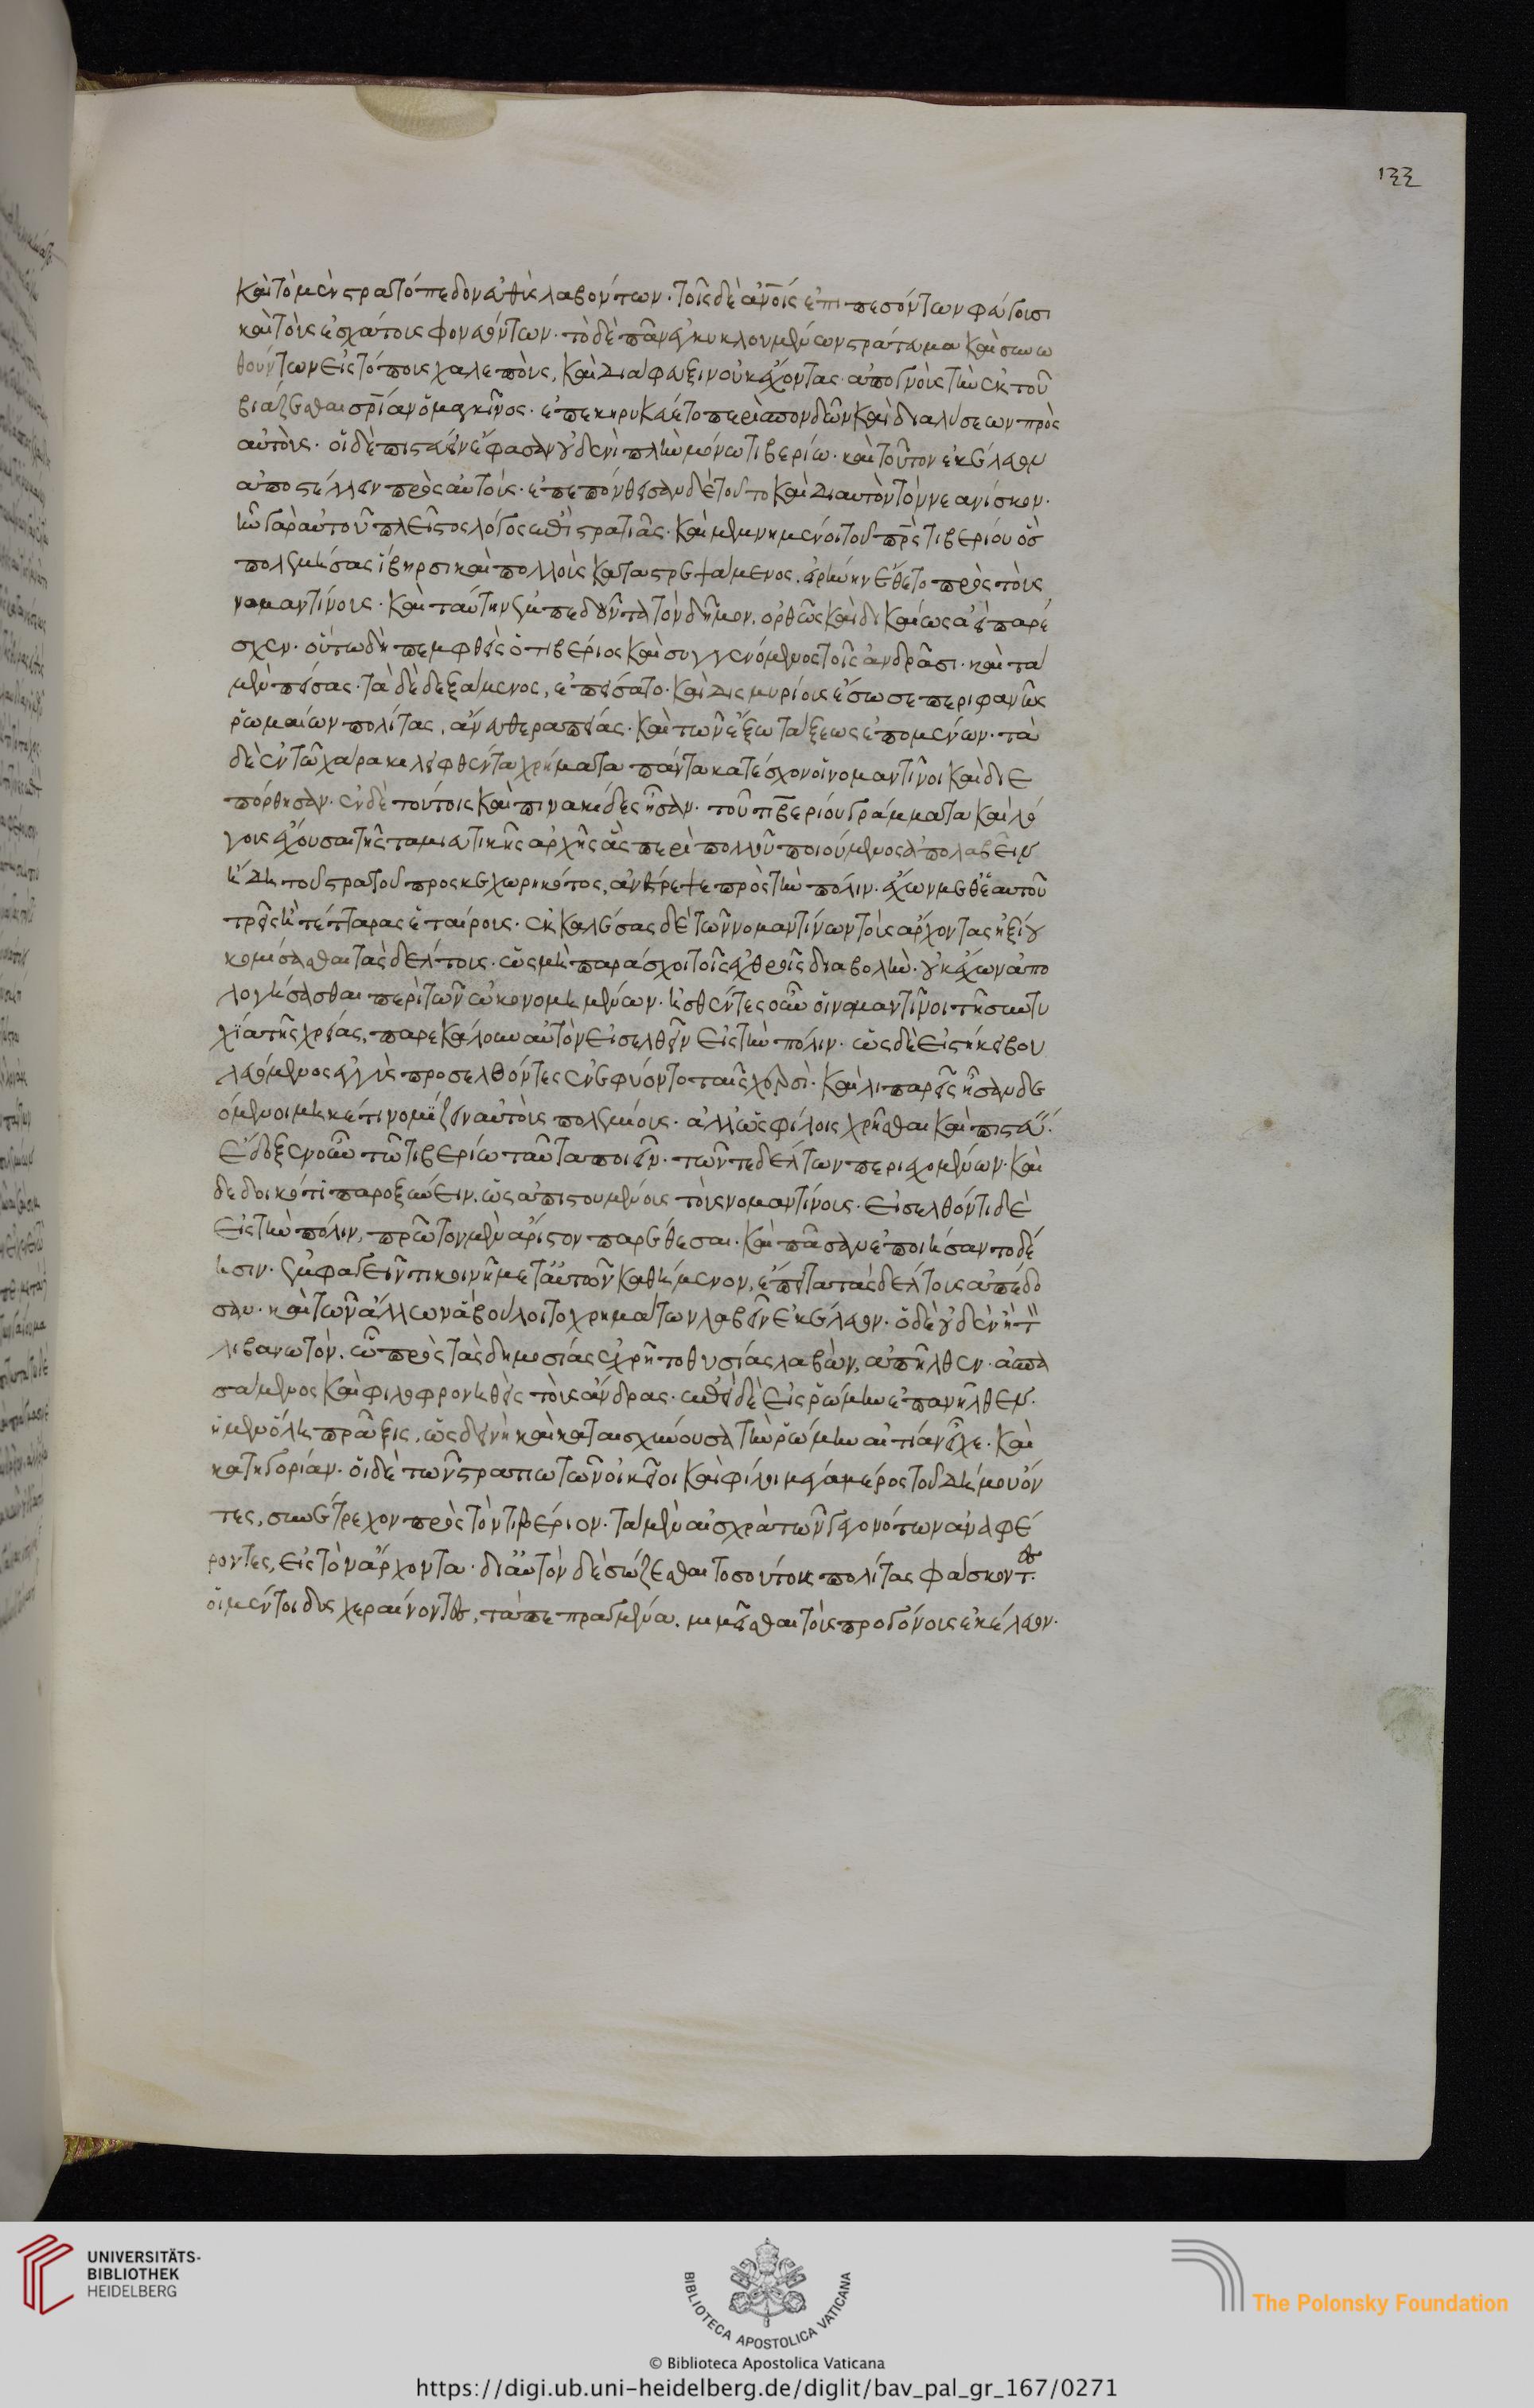 133
καὶ τὸ μὲν στρατόπεδον εὐθὺς λαβόντων· τοῖς δὲ ἀνοις ἐπιπεσόντων φεύγουσι
καὶ τοὺς ἐσχάτους φονευόντων· τὸ δὲ πᾶν ἐγκυκλουμένων στράτευμα καὶ συνω
θούντων εἰς τόπους χαλεποὺς, καὶ διάφευξιν οὐκ ἔχοντας· ἀπογνοὺς τὴν ἐκ τοῦ
βιάζεσθαι σρίαν ὁ μαγκῖνος· ἐπεκηρυκεύετο περὶ σπονδῶν καὶ διαλύσεων πρὸς
αὐτούς· οἱ δὲ πιστεύειν ἔφασαν οὐδενὶ πλὴν μόνω τιβερίω· καὶ τοῦτον ἐκέλευον
ἀποστέλλειν πρὸς αὐτούς· ἐπεπόνθεισαν δὲ τοῦτο καὶ δι αυτὸν τὸν νεανίσκον·
ἦν γὰρ αὐτοῦ πλεῖστος λόγος ἐπὶ στρατιᾶς· καὶ μεμνημένοι τοῦ πρς τιβερίου ὃσ
πολεμήσας ἴβηρσι καὶ πολλοὺς καταστρεψάμενος, εἰρήνην ἔθετο πρὸς τοὺς
νομαντίνους· καὶ ταύτην ἐμπεδοῦντα τὸν δῆμον, ὀρθῶς καὶ δικαίως ἀεὶ παρέ
σχεν· οὕτω δὴ πεμφθεὶς ὁ τιβέριος καὶ συγγενόμενος τοῖς ἀνδράσι· καὶ τὰ
μὲν πείσας· τὰ δὲ δεξάμενος, ἐπείσατο· καὶ δισμυρίους ἔσωσε περιφανῶς
ῥωμαίων πολίτας, ἄνευ θεραπείας· καὶ τῶν ἔξω τάξεως ἑπομένων· τὰ
δὲ ἐν τῶ χάρακι λειφθέντα χρήματα πάντα κατέσχον οἱ νομαντῖνοι καὶ διε
πόρθησαν· ἐν δὲ τούτοις καὶ πινακίδες ἦσαν· τοῦ τιβερίου γράμματα καὶ λό
γους ἔχουσαι τῆς ταμιευτικῆς ἀρχῆς ἃς περὶ πολλοῦ ποιούμενος ἀπολαβεῖν
ἤδη τοῦ στρατοῦ προσκεχωρηκότος, ἀνέτρεψε πρὸς τὴν πόλιν· ἔχων μεθ ἑαυτοῦ
τρεῖς ἢ τέτταρας ἑταίρους· ἐκκαλέσας δὲ τῶν νομαντίνων τοὺς ἄρχοντας ἠξίου
κομίσασθαι τὰς δέλτους· ὡς μὴ παράσχοι τοῖς ἐχθροῖς διαβολὴν· οὐκ ἔχων ἀπο
λογήσασθαι περὶ τῶν ὠκονομημένων· ἡσθέντες οὖν οἱ νομαντῖνοι τῆ συντυ
χία τῆς χρείας, παρεκάλουν αὐτὸν εἰσελθεῖν εἰς τὴν πόλιν· ὡς δὲ εἱστήκει βου
λευόμενος ἐγγὺς προσελθόντες ἐνεφύοντο ταῖς χερσὶ· καὶ λιπαρεῖς ἦσαν δε
όμενοι μηκέτι νομίζειν αὐτοὺς πολεμίους· ἀλλ ὡς φίλοις χρῆσθαι καὶ πιστεύ·
ἔδοξεν οὖν τῶ τιβερίω ταῦτα ποιεῖν· τῶν τε δέλτων περιεχομένων· καὶ
δεδοικότι παροξύνειν, ὡς ἀπιστουμένους τοὺς νομαντίνους· εἰσελθόντι δὲ
εἰς τὴν πόλιν, πρῶτον μὲν ἄριστον παρέθεσαι· καὶ πᾶσαν ἐποιήσαντο δέ
ησιν· ἐμφαγεῖν τι κοινῆ μετ αὐτῶν καθήμενον, ἔπειτα τὰς δέλτους ἀπέδο
σαν· καὶ τῶν ἄλλων ἃ βούλοιτο χρημάτων λαβεῖν ἐκέλευον· ὁ δὲ οὐδὲν ἢ τ
λιβανωτὸν, ὧ πρὸς τὰς δημοσίας ἐχρῆτο θυσίας λαβὼν, ἀπῆλθεν· ἀσπα
σάμενος καὶ φιλοφρονηθεὶς τοὺς ἄνδρας· ἐπεὶ δὲ εἰς ῥώμην ἐπανῆλθεν·
ἡ μὲν ὅλη πρᾶξις, ὡς δεινὴ καὶ καταισχύνουσα τὴν ῥώμην αἰτίαν εἶχε· καὶ
κατηγορίαν· οἱ δὲ τῶν στρατιωτῶν οἰκεῖοι καὶ φίλοι μέγα μέρος τοῦ δήμου ὄν
τες, συνέτρεχον πρὸς τὸν τιβέριον· τὰ μὲν αἰσχρὰ τῶν γεγονότων ἀναφέ
ροντες, εἰς τὸν ἄρχοντα· δι αὐτὸν δὲ σώζεσθαι τοσούτους πολίτας φάσκοντ·
οἱ μέντοι δυσχεραίνοντες, τὰ πεπραγμένα, μιμεῖσθαι τοὺς προγόνους ἐκέλευον·
UNIVERSITÄTS-
BIBLIOTHEK
HEIDELBERG
BIBLIOTECA APOSTOLICA VATICANA
The Polonsky Foundation
© Biblioteca Apostolica Vaticana
https://digi.ub.uni-heidelberg.de/diglit/bav_pal_gr_167/0271